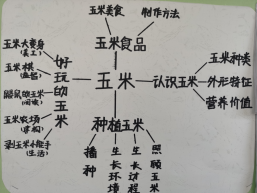 玉米美食
制作方法
玉米食品
玉米
好玩的玉米
玉米大变身
(美工)
玉米棋
(益智)
鼹鼠的玉米
(阅读)
玉米农场
(建构)
剥玉米小能手
(生活)
认识玉米
玉米种类
外形特征
营养价值
种植玉米
播种
生长环境
生长过程
照顾玉米